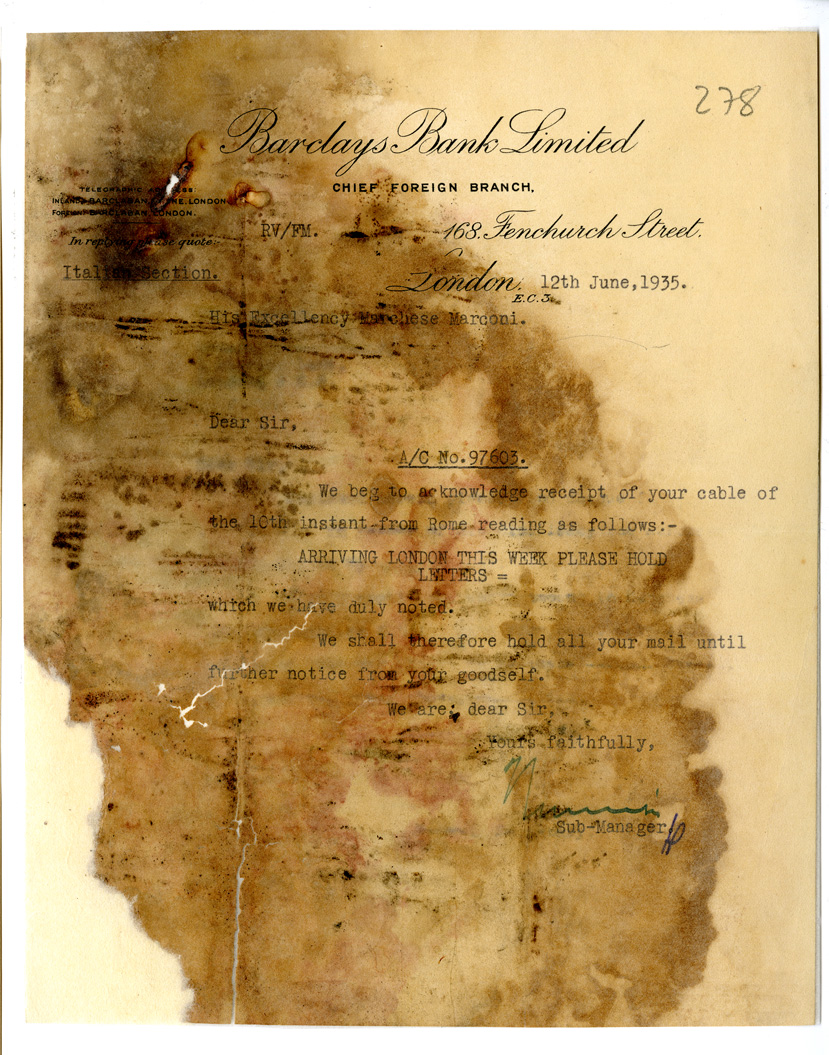 278
Barclays Bank Limited
CHIEF FOREIGN BRANCH,
TELEGRAPHIC ADDRESS:
INLAND: BARCLABAN, THE, LONDON
FOREIGN: BARCLABAN, LONDON.
168, Fenchurch Street.
In replying please quote:
RV/FM.
Italian Section.
London. 12th June,1935.
E.C.3.
His Excellency Marchese Marconi.
Dear Sir,
A/C No.97603.
We beg to acknowledge receipt of your cable of
the 10th instant from Rome reading as follows:-
ARRIVING LONDON THIS WEEK PLEASE HOLD
LETTERS =
which we have duly noted.
We shall therefore hold all your mail until
further notice from your goodself.
We are, dear Sir,
Yours faithfully,
Sub-Manager.